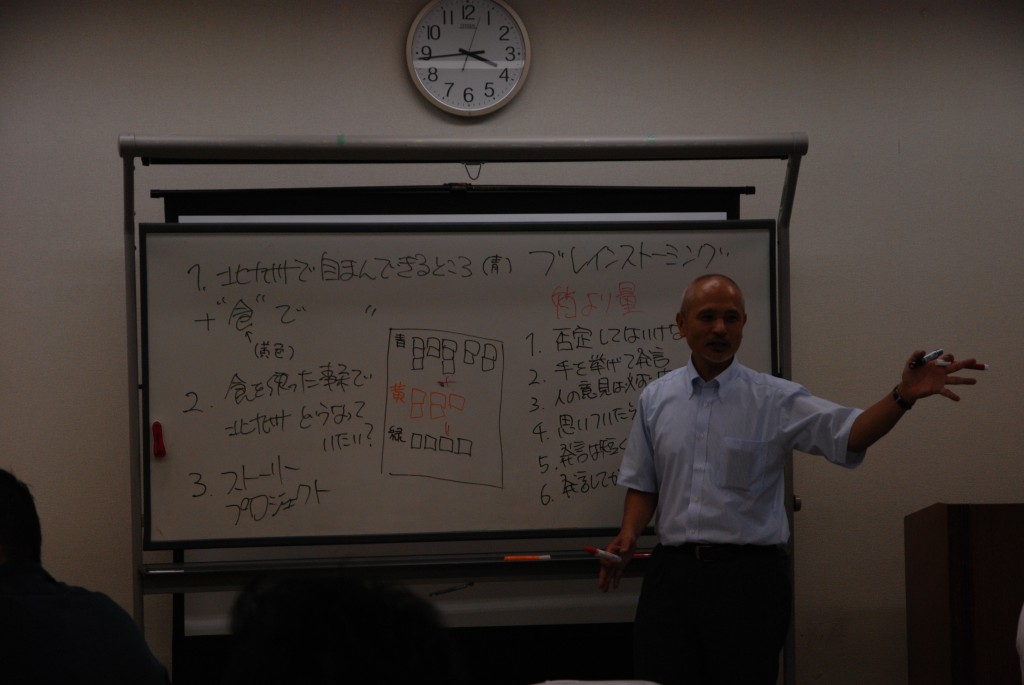 12 1 2 3 4 5 6 7 8 9 10 11
1. 北九州で自まんできるところ(青)
+"食"で 〃
(黄色)
2. 食を使った事業で
北九州どうなって
いたい?
3. ストーリー
プロジェクト
青
黄
緑
ブレインストーミング
質より量
1. 否定してはいけな
2. 手を挙げて発言
3. 人の意見は
4. 思いついたら
5. 発言は短く
6. 発言してか